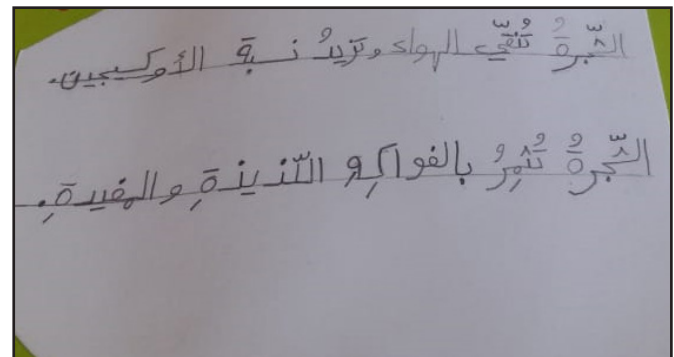 الشّجرةُ تُنَقّي الهواء وتزيدُ نسبة الأوكسيجين.
الشّجرةُ تُثمِرُ بالفواكِهِ اللّذيذةِ والمفيدةِ.